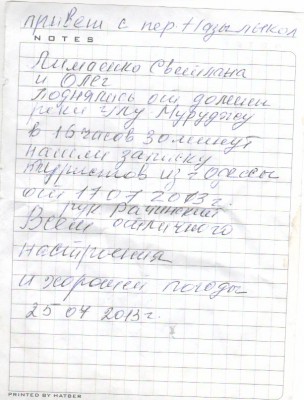 привет с пер. Надымнкол
NOTES
Лимасико Светлана
и Олег
поднялись от долины
реки Улу Муруджу
в 16 часов 30 минут
нашли записку
туристов из г Одессы
от 17.07 2013 г.
рук Рачинский
Всем отличного
настроения
и хорошей погоды
25 07 2013 г.
PRINTED BY HATBER